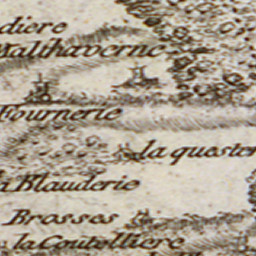 diere
Malthaverne
Fournerie
la quester
a Blauderie
Brosses
la Coutelliere